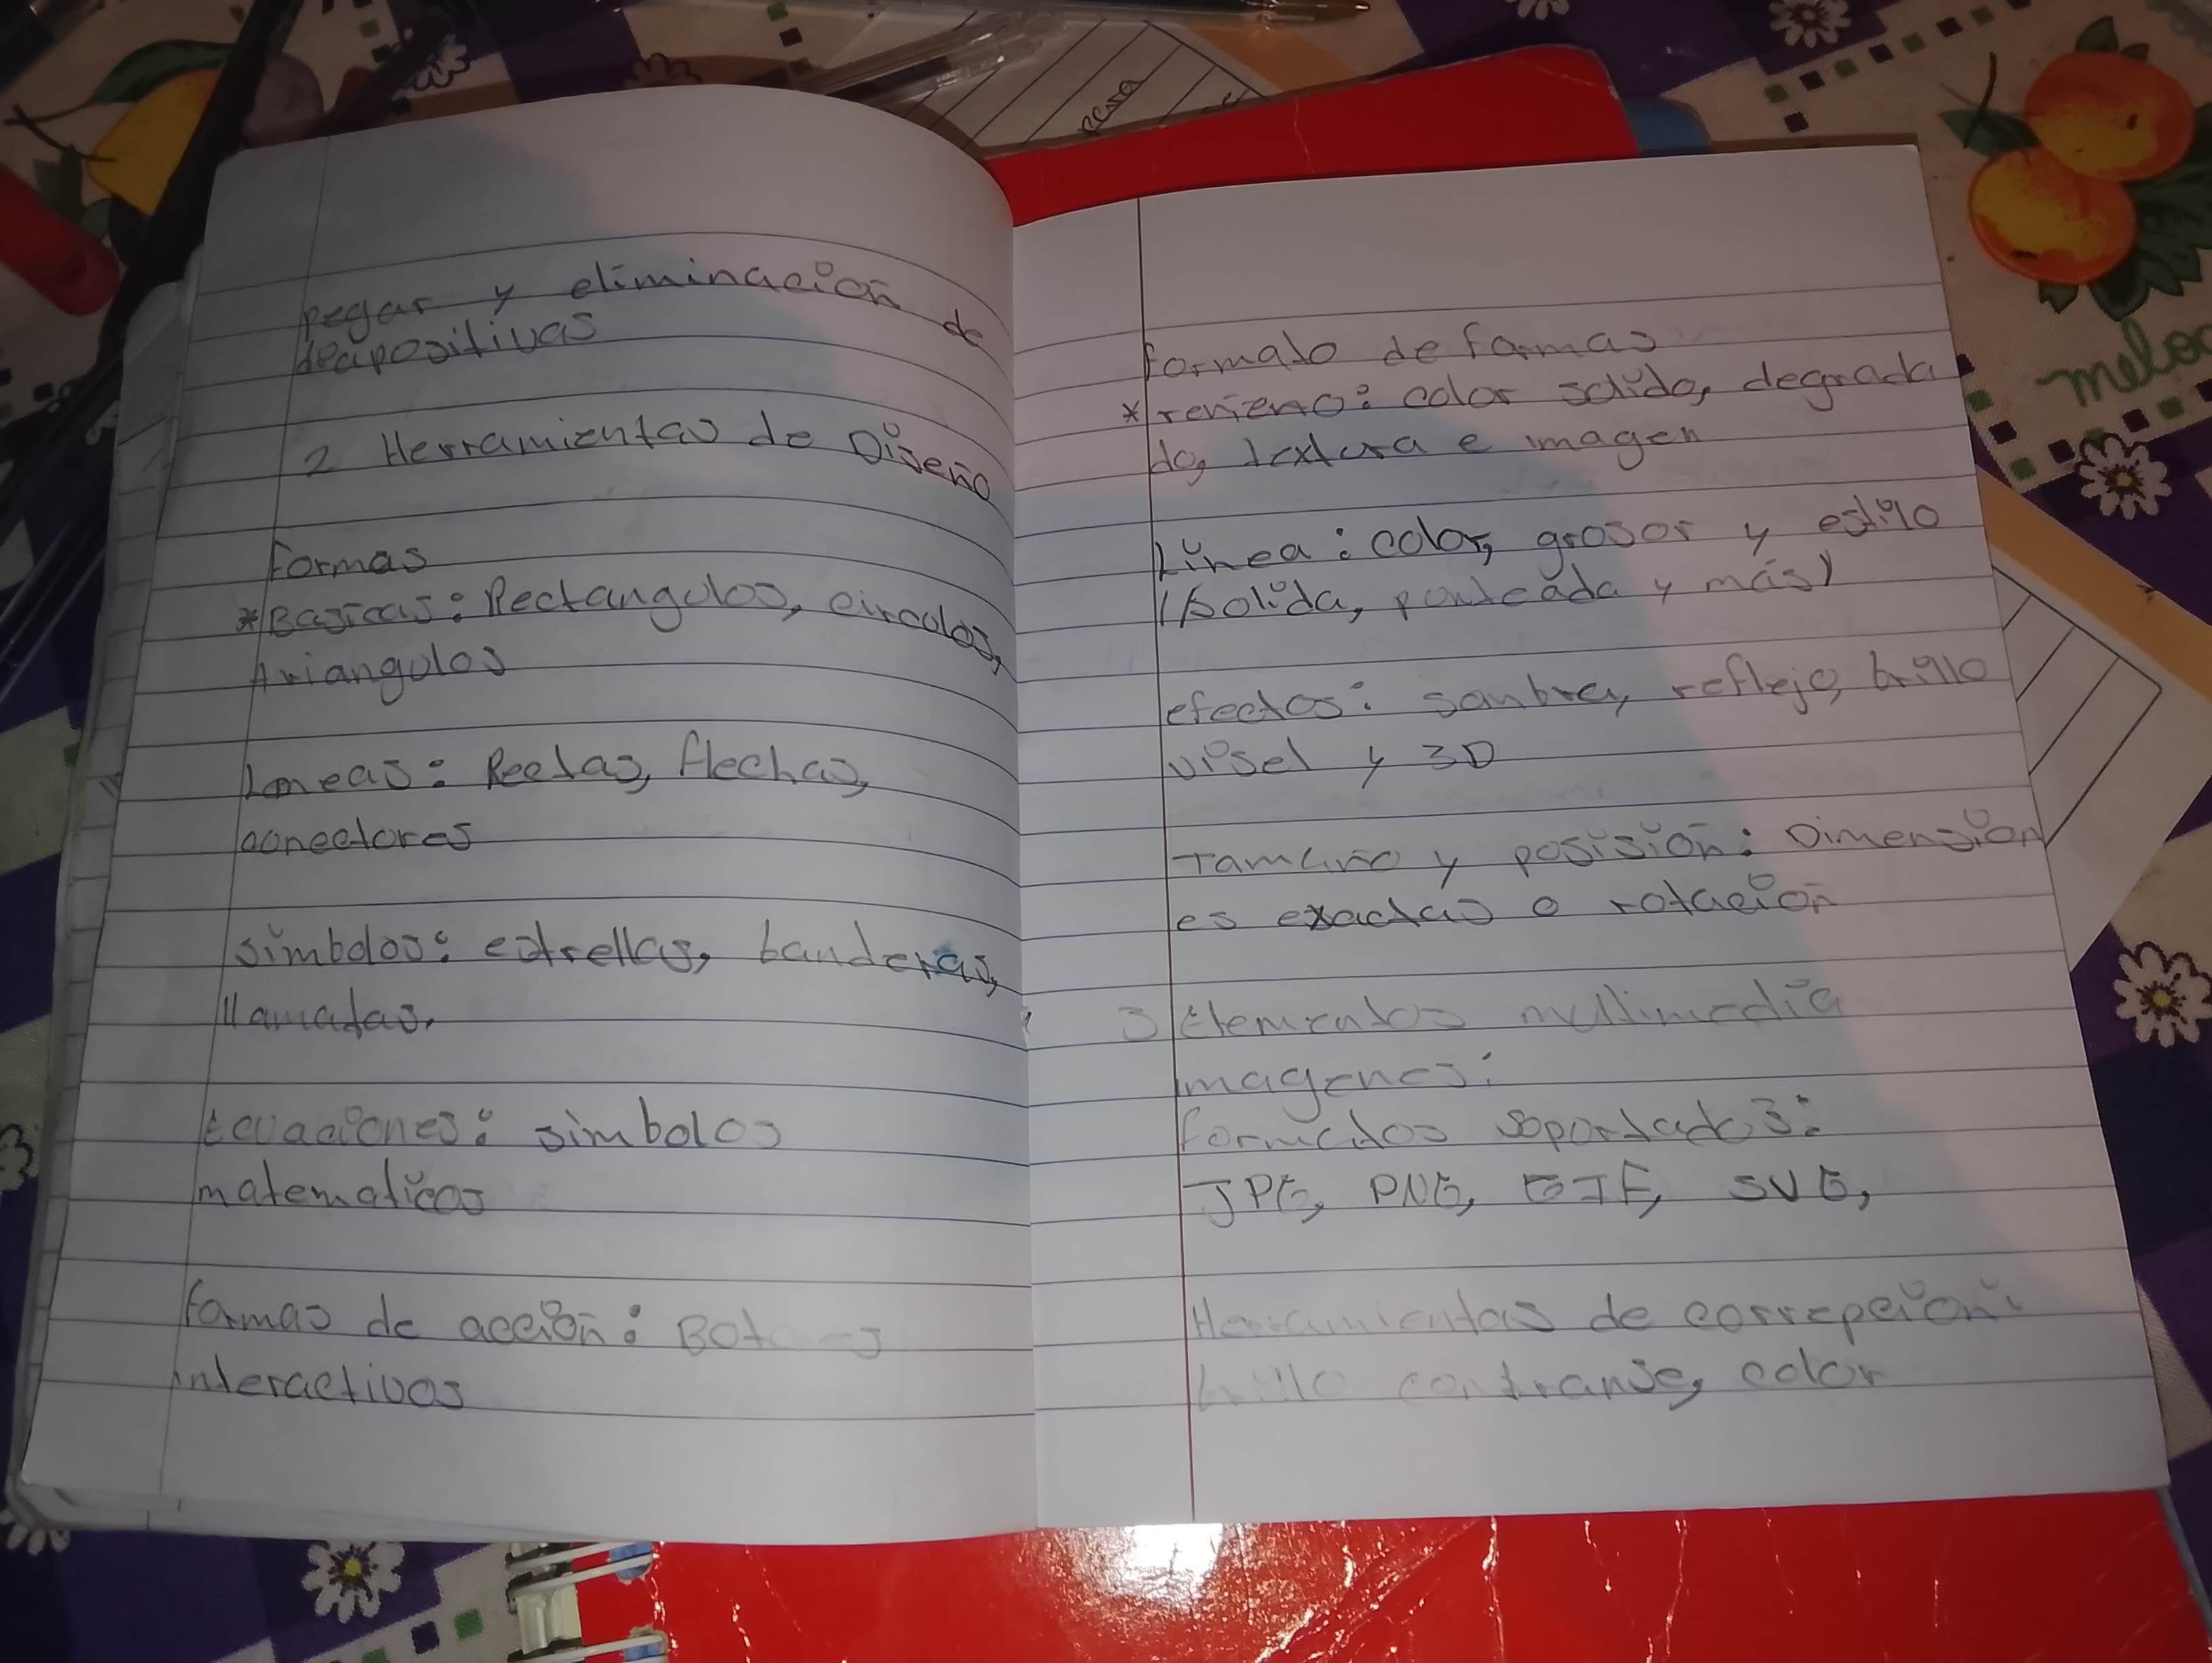 pegar y eliminación de
deapositivas
2 Herramientas de Diseño
Formas
*Basicas: Rectangulos, circulos,
triangulos
Lineas: Rectas, flechas,
conectores
simbolos: estrellas, banderas,
llamadas.
Ecuaciones: simbolos
matematicos
formas de acción: Botones
interactivos
formato de formas
*reyeno: color solido, degrada
do, textura e imagen
Linea: color, grosor y estilo
(solida, punteada y más)
efectos: sombra, reflejo, brillo
visel y 3D
Tamaño y posisión: Dimension
es exactas o rotación
3 Elementos multimedia
imagenes:
formatos soportados:
JPG, PNG, GIF, SVG,
Herramientas de correpcion:
brillo contranse, color
pesa
melo